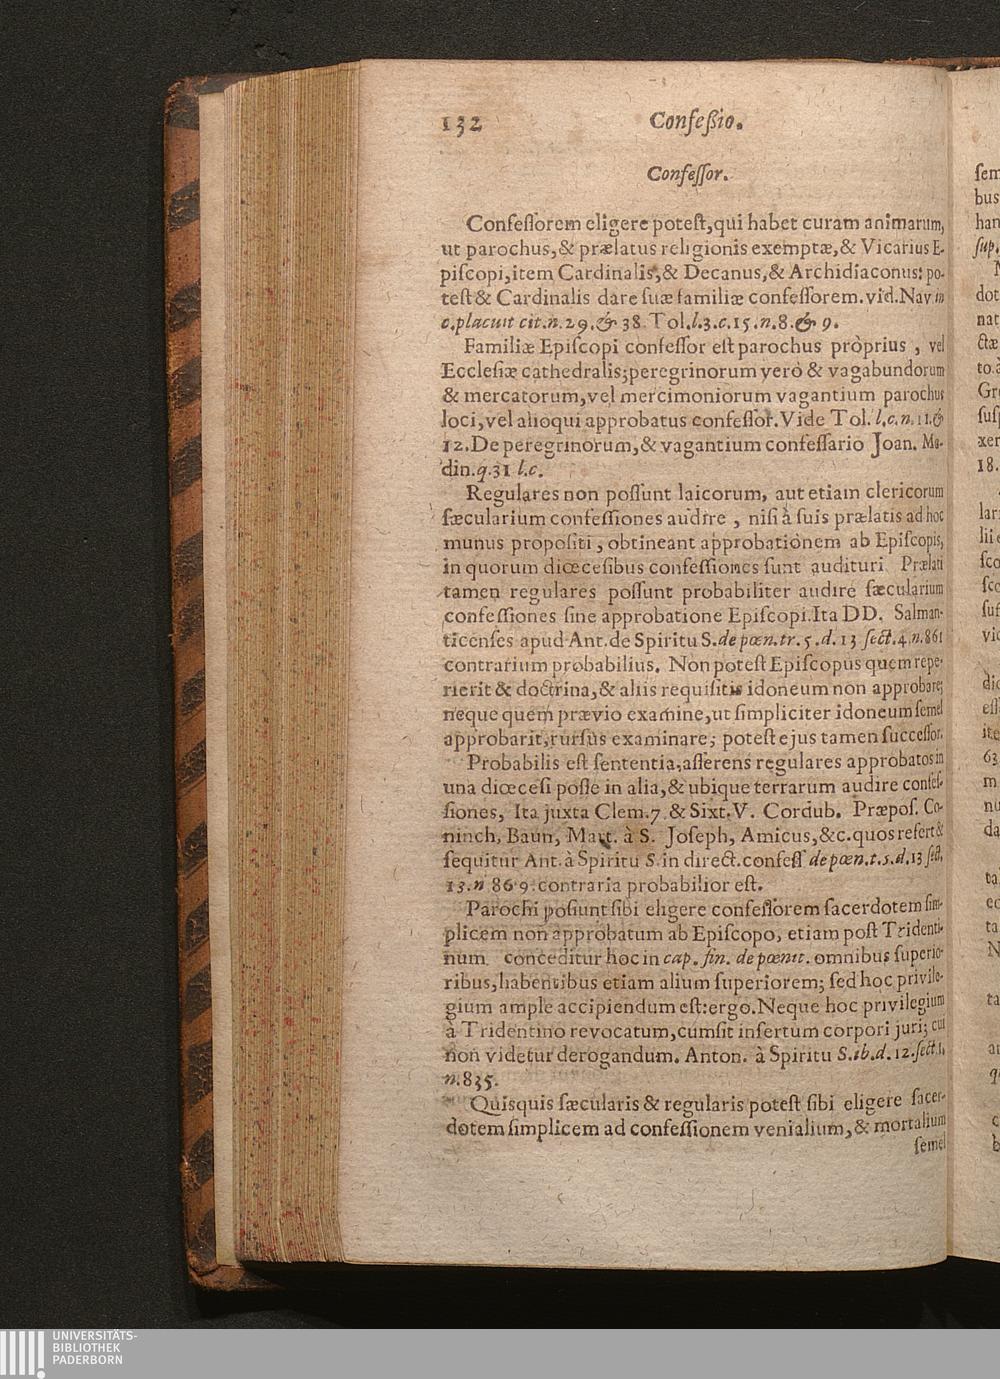 132 Confeßio.
Confeſſor.
Confeſſorem eligere poteſt,qui habet curam animarum,
ut parochus,& prælatus religionis exemptæ,& Vicarius E-
piſcopi,item Cardinalis,& Decanus,& Archidiaconus: po-
teſt & Cardinalis dare ſuæ familiæ confeſſorem.vid.Nav in
c.placuit cit.n.29.& 38. Tol.l.3.c.15.n.8.& 9.
Familiæ Epiſcopi confeſſor eſt parochus pròprius , vel
Eccleſiæ cathedralis;peregrinorum verò & vagabundorum
& mercatorum,vel mercimoniorum vagantium parochus
loci,vel alioqui approbatus confeſſor.Vide Tol. l.c.n.11.&
12.De peregrinorum,& vagantium confeſſario Joan. Me-
din.q.31 l.c.
Regulares non poſſunt laicorum, aut etiam clericorum
ſæcularium confeſſiones audire , niſi à ſuis prælatis ad hoc
munus propoſiti , obtineant approbationem ab Epiſcopis,
in quorum diœceſibus confeſſiones ſunt audituri Prælati
tamen regulares poſſunt probabiliter audire ſæcularium
confeſſiones ſine approbatione Epiſcopi.Ita DD. Salman-
ticenſes apud Ant.de Spiritu S.de pœn.tr.5.d.13 ſect.4.n.861
contrarium probabilius. Non poteſt Epiſcopus quem repe-
rierit & doctrina,& aliis requiſitis idoneum non approbare;
neque quem prævio examine,ut ſimpliciter idoneum ſemel
approbarit,rurſus examinare; poteſt ejus tamen ſucceſſor.
Probabilis eſt ſententia,aſſerens regulares approbatos in
una diœceſi poſſe in alia,& ubique terrarum audire confeſ-
ſiones, Ita juxta Clem.7 & Sixt.V. Cordub. Præpoſ. Co-
ninch, Baun, Mart. à S. Joſeph, Amicus,&c.quos refert &
ſequitur Ant.à Spiritu S.in direct.confeſſ de pœn.t.5.d.13 ſect.
13.n 869.contraria probabilior eſt.
Parochi poſſunt ſibi eligere confeſſorem ſacerdotem ſim-
plicem non approbatum ab Epiſcopo, etiam poſt Tridenti-
num. conceditur hoc in cap. fin. de pœnit. omnibus ſuperio-
ribus,habentibus etiam alium ſuperiorem; ſed hoc privile-
gium ample accipiendum eſt:ergo.Neque hoc privilegium
à Tridentino revocatum,cumſit inſertum corpori juri; cui
non videtur derogandum. Anton. à Spiritu S.ib.d.12.ſect.1.
n.835.
Quisquis ſæcularis & regularis poteſt ſibi eligere ſacer-
dotem ſimplicem ad confeſſionem venialium,& mortalium
ſemel
UNIVERSITÄTS-
BIBLIOTHEK
PADERBORN